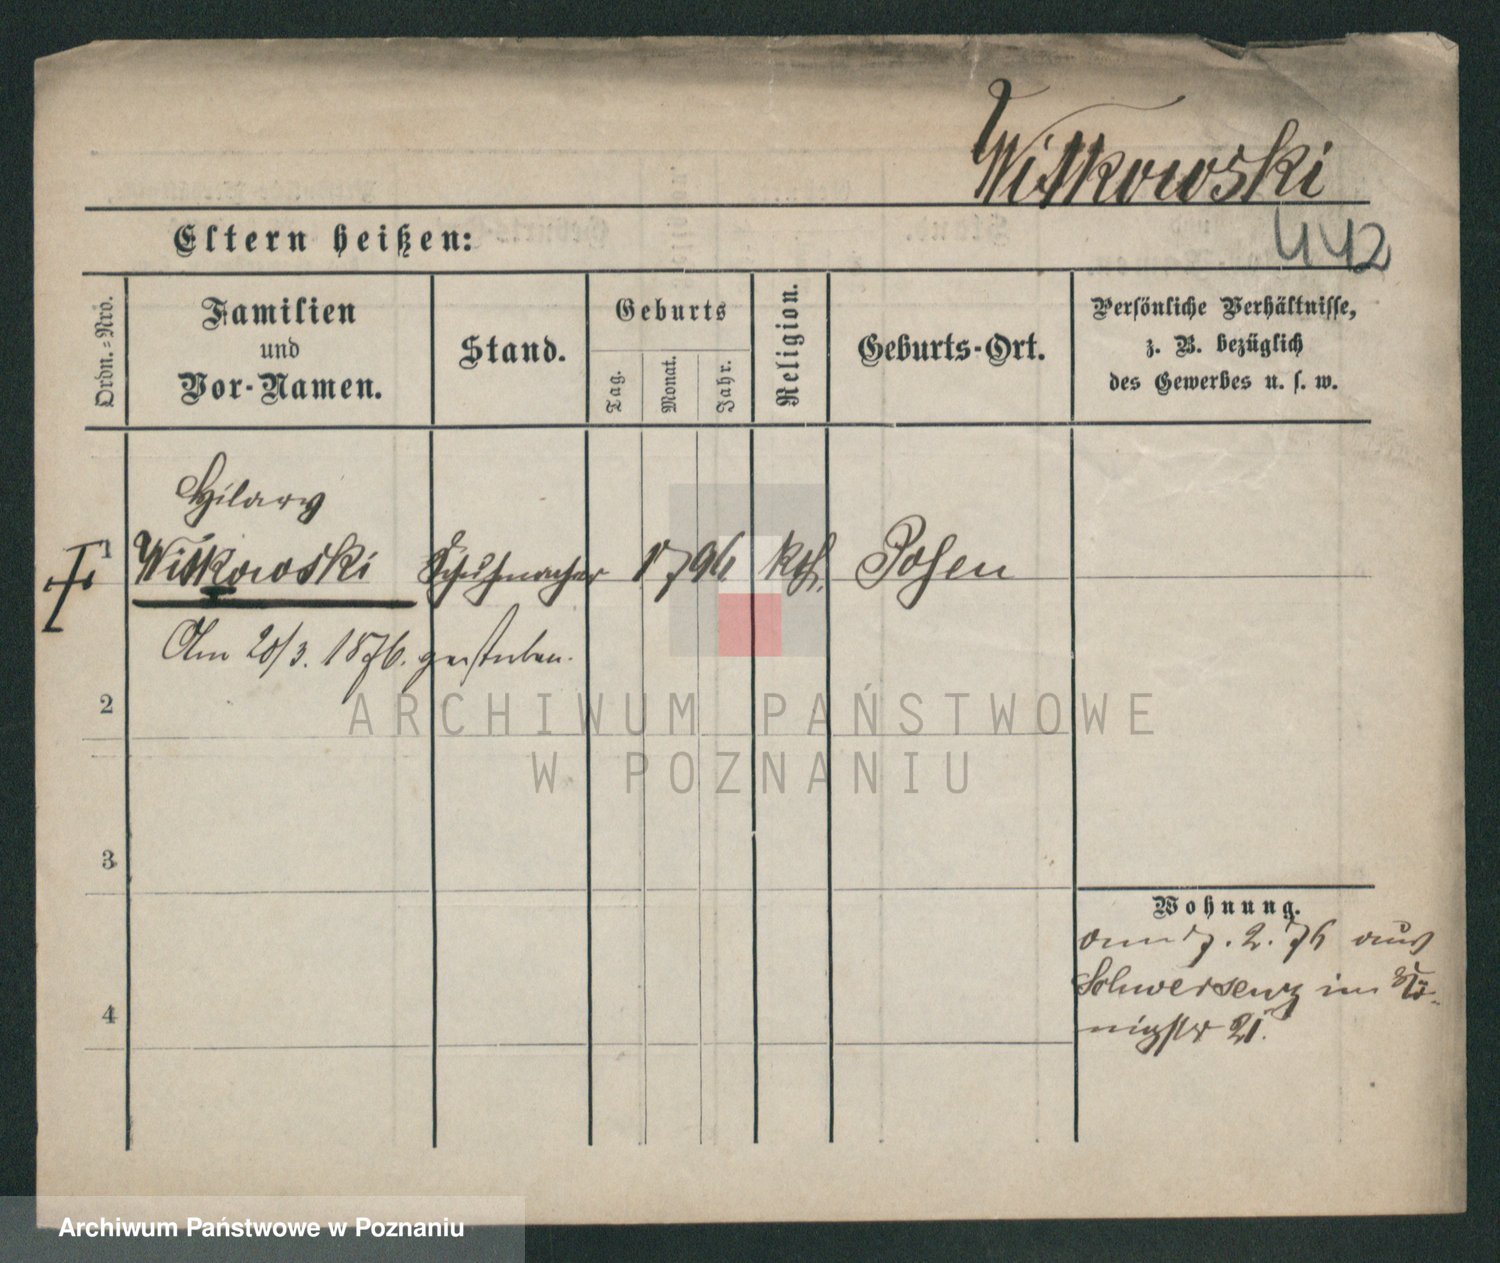 Witkowski
442
Eltern heißen:
Ordn.=Nro.
Familien
und
Vor-Namen.
Stand.
Geburts
Tag.
Monat.
Jahr.
Religion.
Geburts-Ort.
Persönliche Verhältnisse,
z. B. bezüglich
des Gewerbes u. s. w.
Hilary
1 Witkowski Schuhmacher 1796 kth. Posen
Am 20/3. 1876. gestorben.
2
3
4
Wohnung.
am 7. 2. 76 aus
Schwersenz in Kö-
nigstr 21.
ARCHIWUM PAŃSTWOWE
W POZNANIU
Archiwum Państwowe w Poznaniu